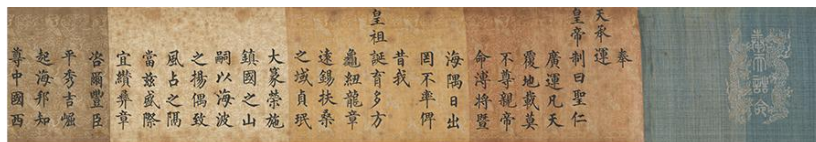 奉天誥命
奉
天承運
皇帝制曰聖仁
廣運凡天
覆地載莫
不尊親帝
命溥將暨
海隅日出
罔不率俾
昔我
皇祖誕育多方
龜紐龍章
遠錫扶桑
之域貞珉
大篆榮施
鎮國之山
嗣以海波
之揚偶致
風占之隔
當茲盛際
宜纘彝章
咨爾豐臣
平秀吉崛
起海邦知
尊中國西